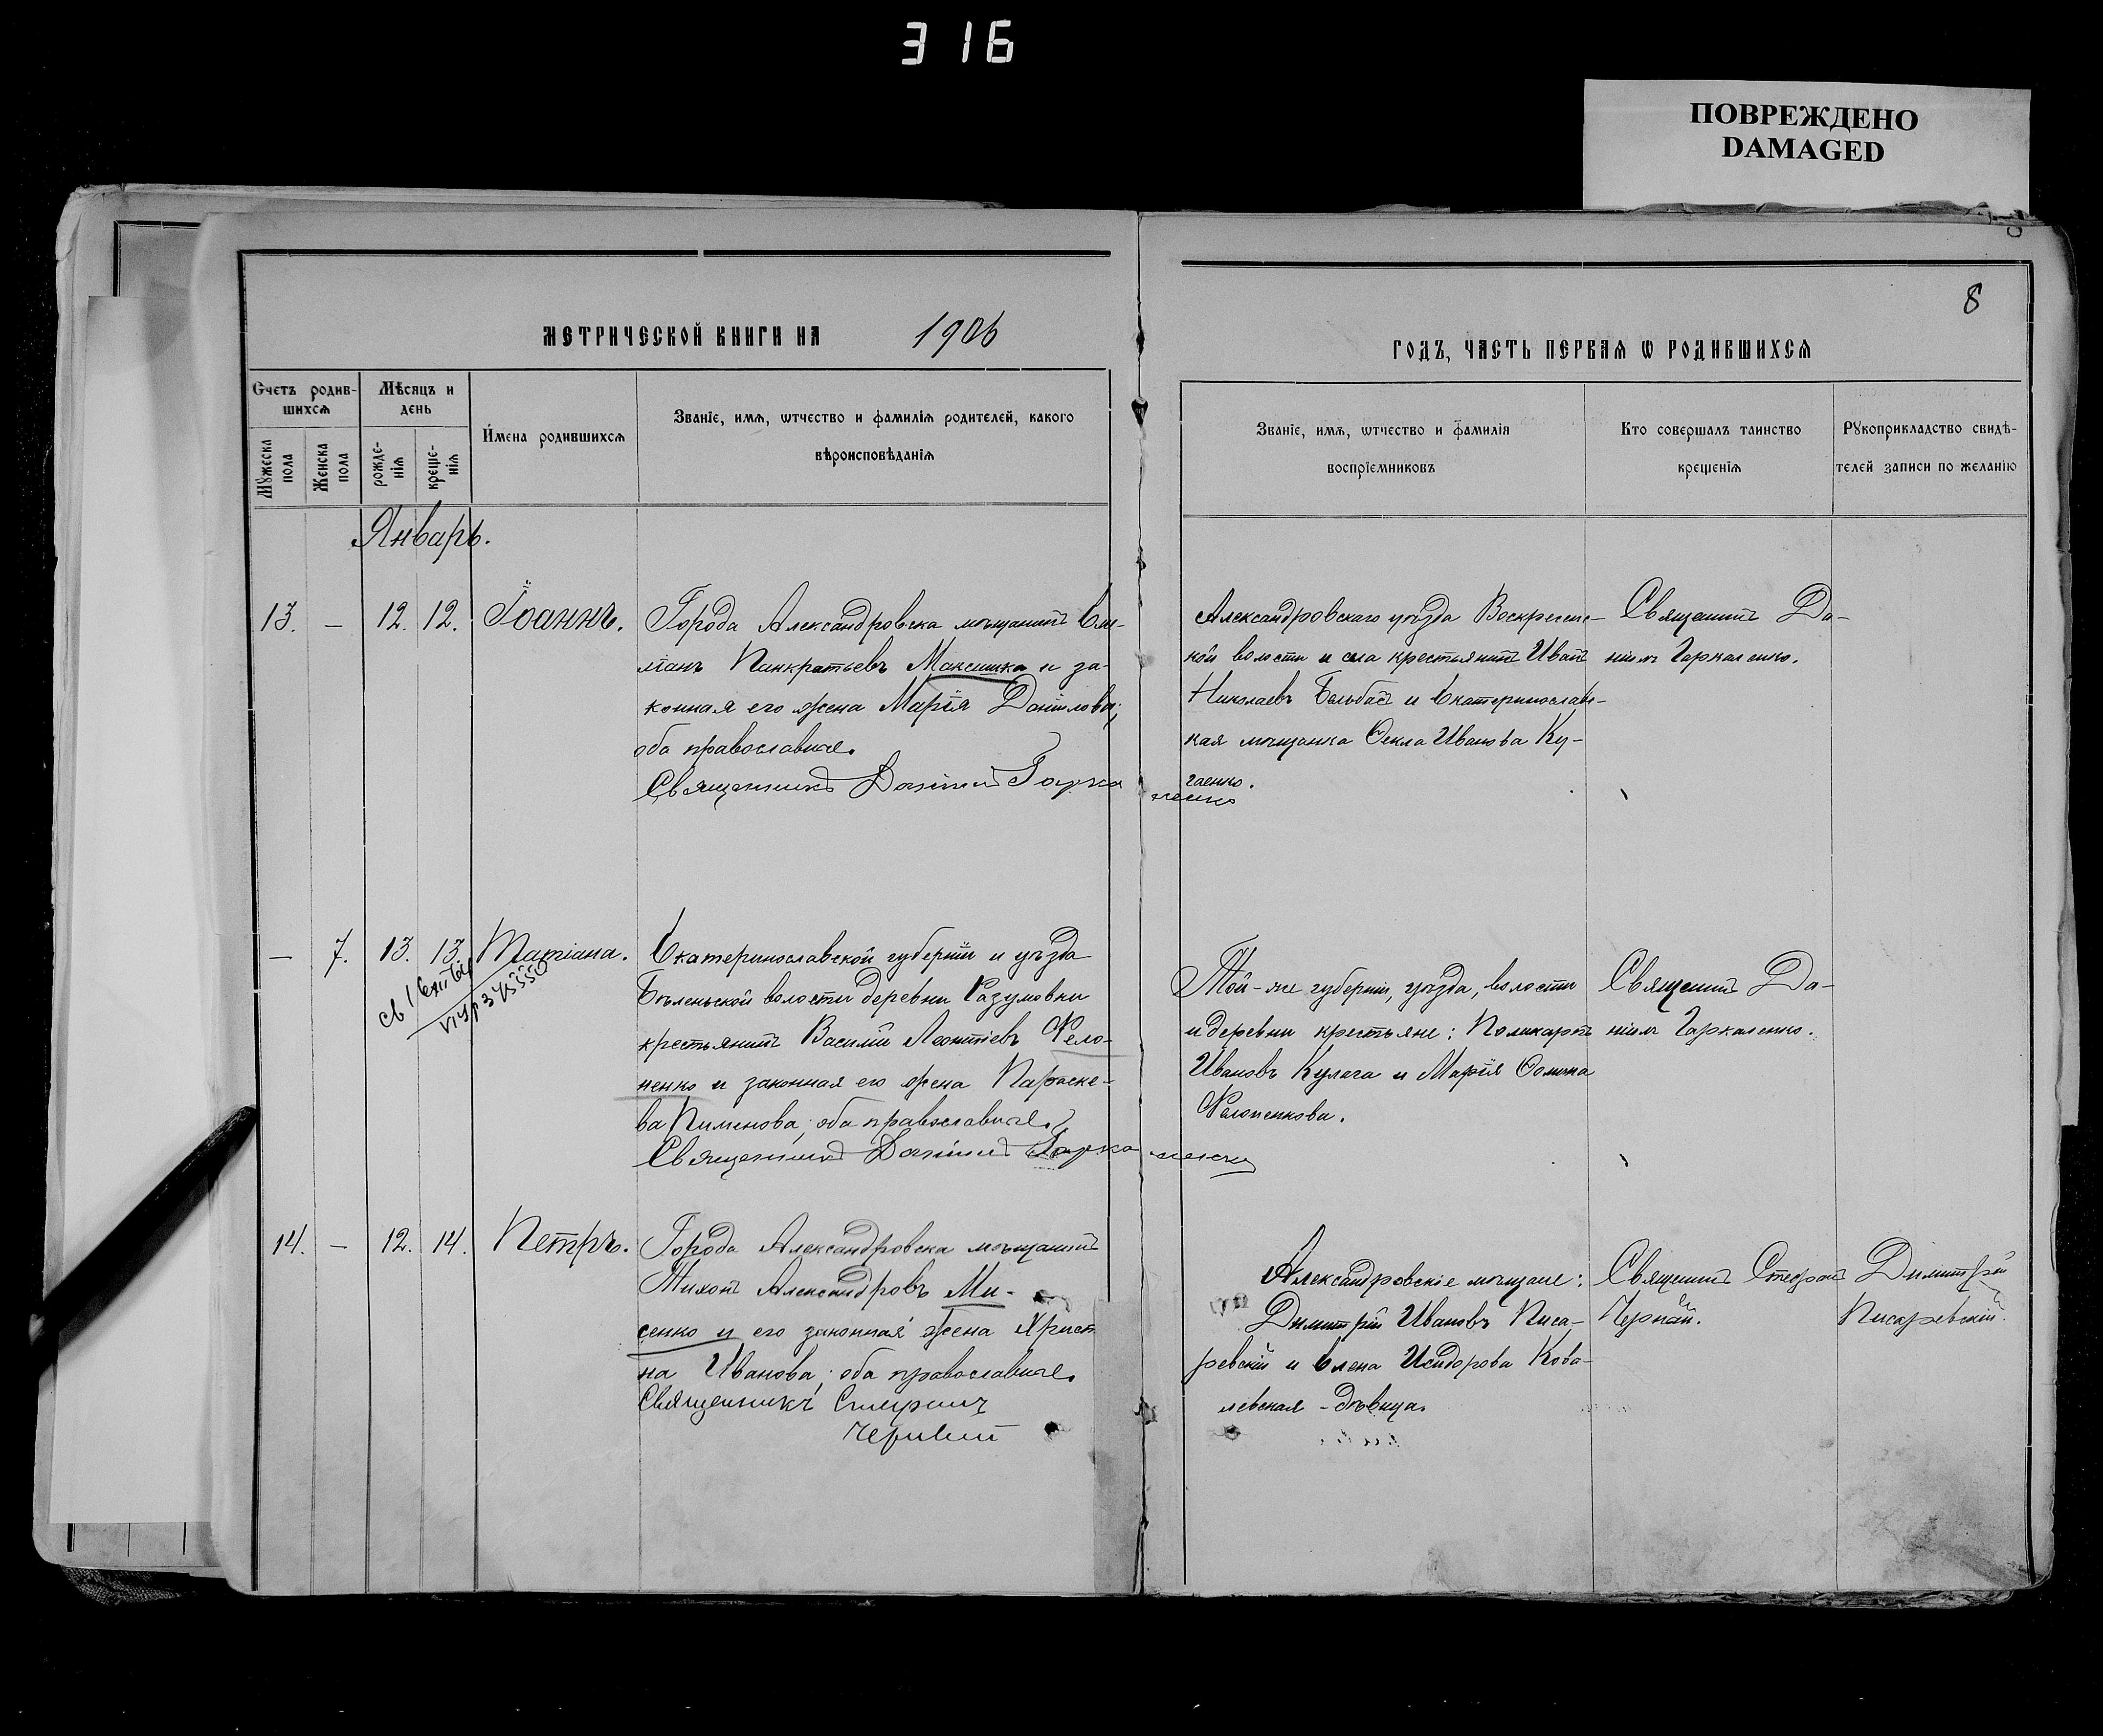 316
ПОВРЕЖДЕНО
DAMAGED
8
МЕТРИЧЕСКОЙ КНИГИ НА 1906
ГОДЪ, ЧАСТЬ ПЕРВАѦ Ѡ РОДИВШИХСѦ
Счетъ родив-
шихсѧ
Мꙋжеска пола
Женска пола
Мѣсяцъ и
день
рожде-
нія
креще-
нія
Имена родившихсѧ
Званіе, имѧ, ѡтчество и фамиліѧ родителей, какого
вѣроисповѣданіѧ
Званіе, имѧ, ѡтчество и фамиліѧ
воспріемниковъ
Кто совершалъ таинство
крещеніѧ
Рꙋкоприкладство свидѣ-
телей записи по желанію
Январь.
13. — 12. 12. Іоаннъ.
Города Александровска мѣщанинъ Ем-
ліанъ Панкратьевъ Максишко и за-
конная его жена Марія Данилова;
оба православные.
Священникъ Даніилъ Гаркаленко
Александровскаго уѣзда Воскресенс-
кой волости и села крестьянинъ Иванъ
Николаевъ Бельбасъ и Екатеринославс-
кая мѣщанка Ѳекла Иванова Ку-
гаенко.
Священникъ Да-
ніилъ Гаркаленко.
— 7. 13. 13. Татіана.
Екатеринославской губерніи и уѣзда
Бѣленьской волости деревни Разумовки
крестьянинъ Василій Леонтіевъ Фело-
ненко и законная его жена Параске-
ва Пименова; оба православные.
Священникъ Даніилъ Гаркаленко
Той-же губерніи, уѣзда, волости
и деревни крестьяне: Поликарпъ
Ивановъ Кулага и Марія Ѳомина
Фелоненкова.
Священникъ Да-
ніилъ Гаркаленко.
14. — 12. 14. Петръ.
Города Александровска мѣщанинъ
Тихонъ Александровъ Ми-
сенко и его законная жена Христи
на Иванова; оба православные.
Священникъ Стефанъ
Чернай
Александровскіе мѣщане:
Димитрій Ивановъ Писа-
ревскій и Елена Исидорова Кова-
левская - дѣвица.
Священникъ Стефанъ
Чернай.
Димитрій
Писаревскій.